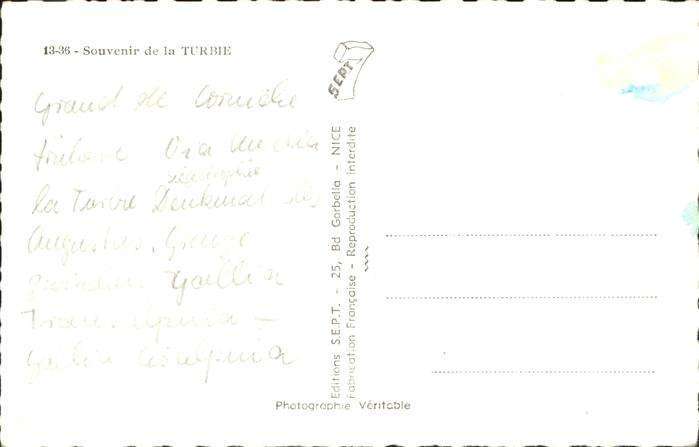 13-36 - Souvenir de la TURBIE
SEPT
Grand de Corniche
Via
la Turbie Denkmal des
Augustus, Grenze
zwischen Gallia
Transalpina -
Gallia Cisalpina
Editions S.E.P.T. - 25, Bd Gorbella - NICE
Fabrication Française - Reproduction interdite
Photographie Véritable